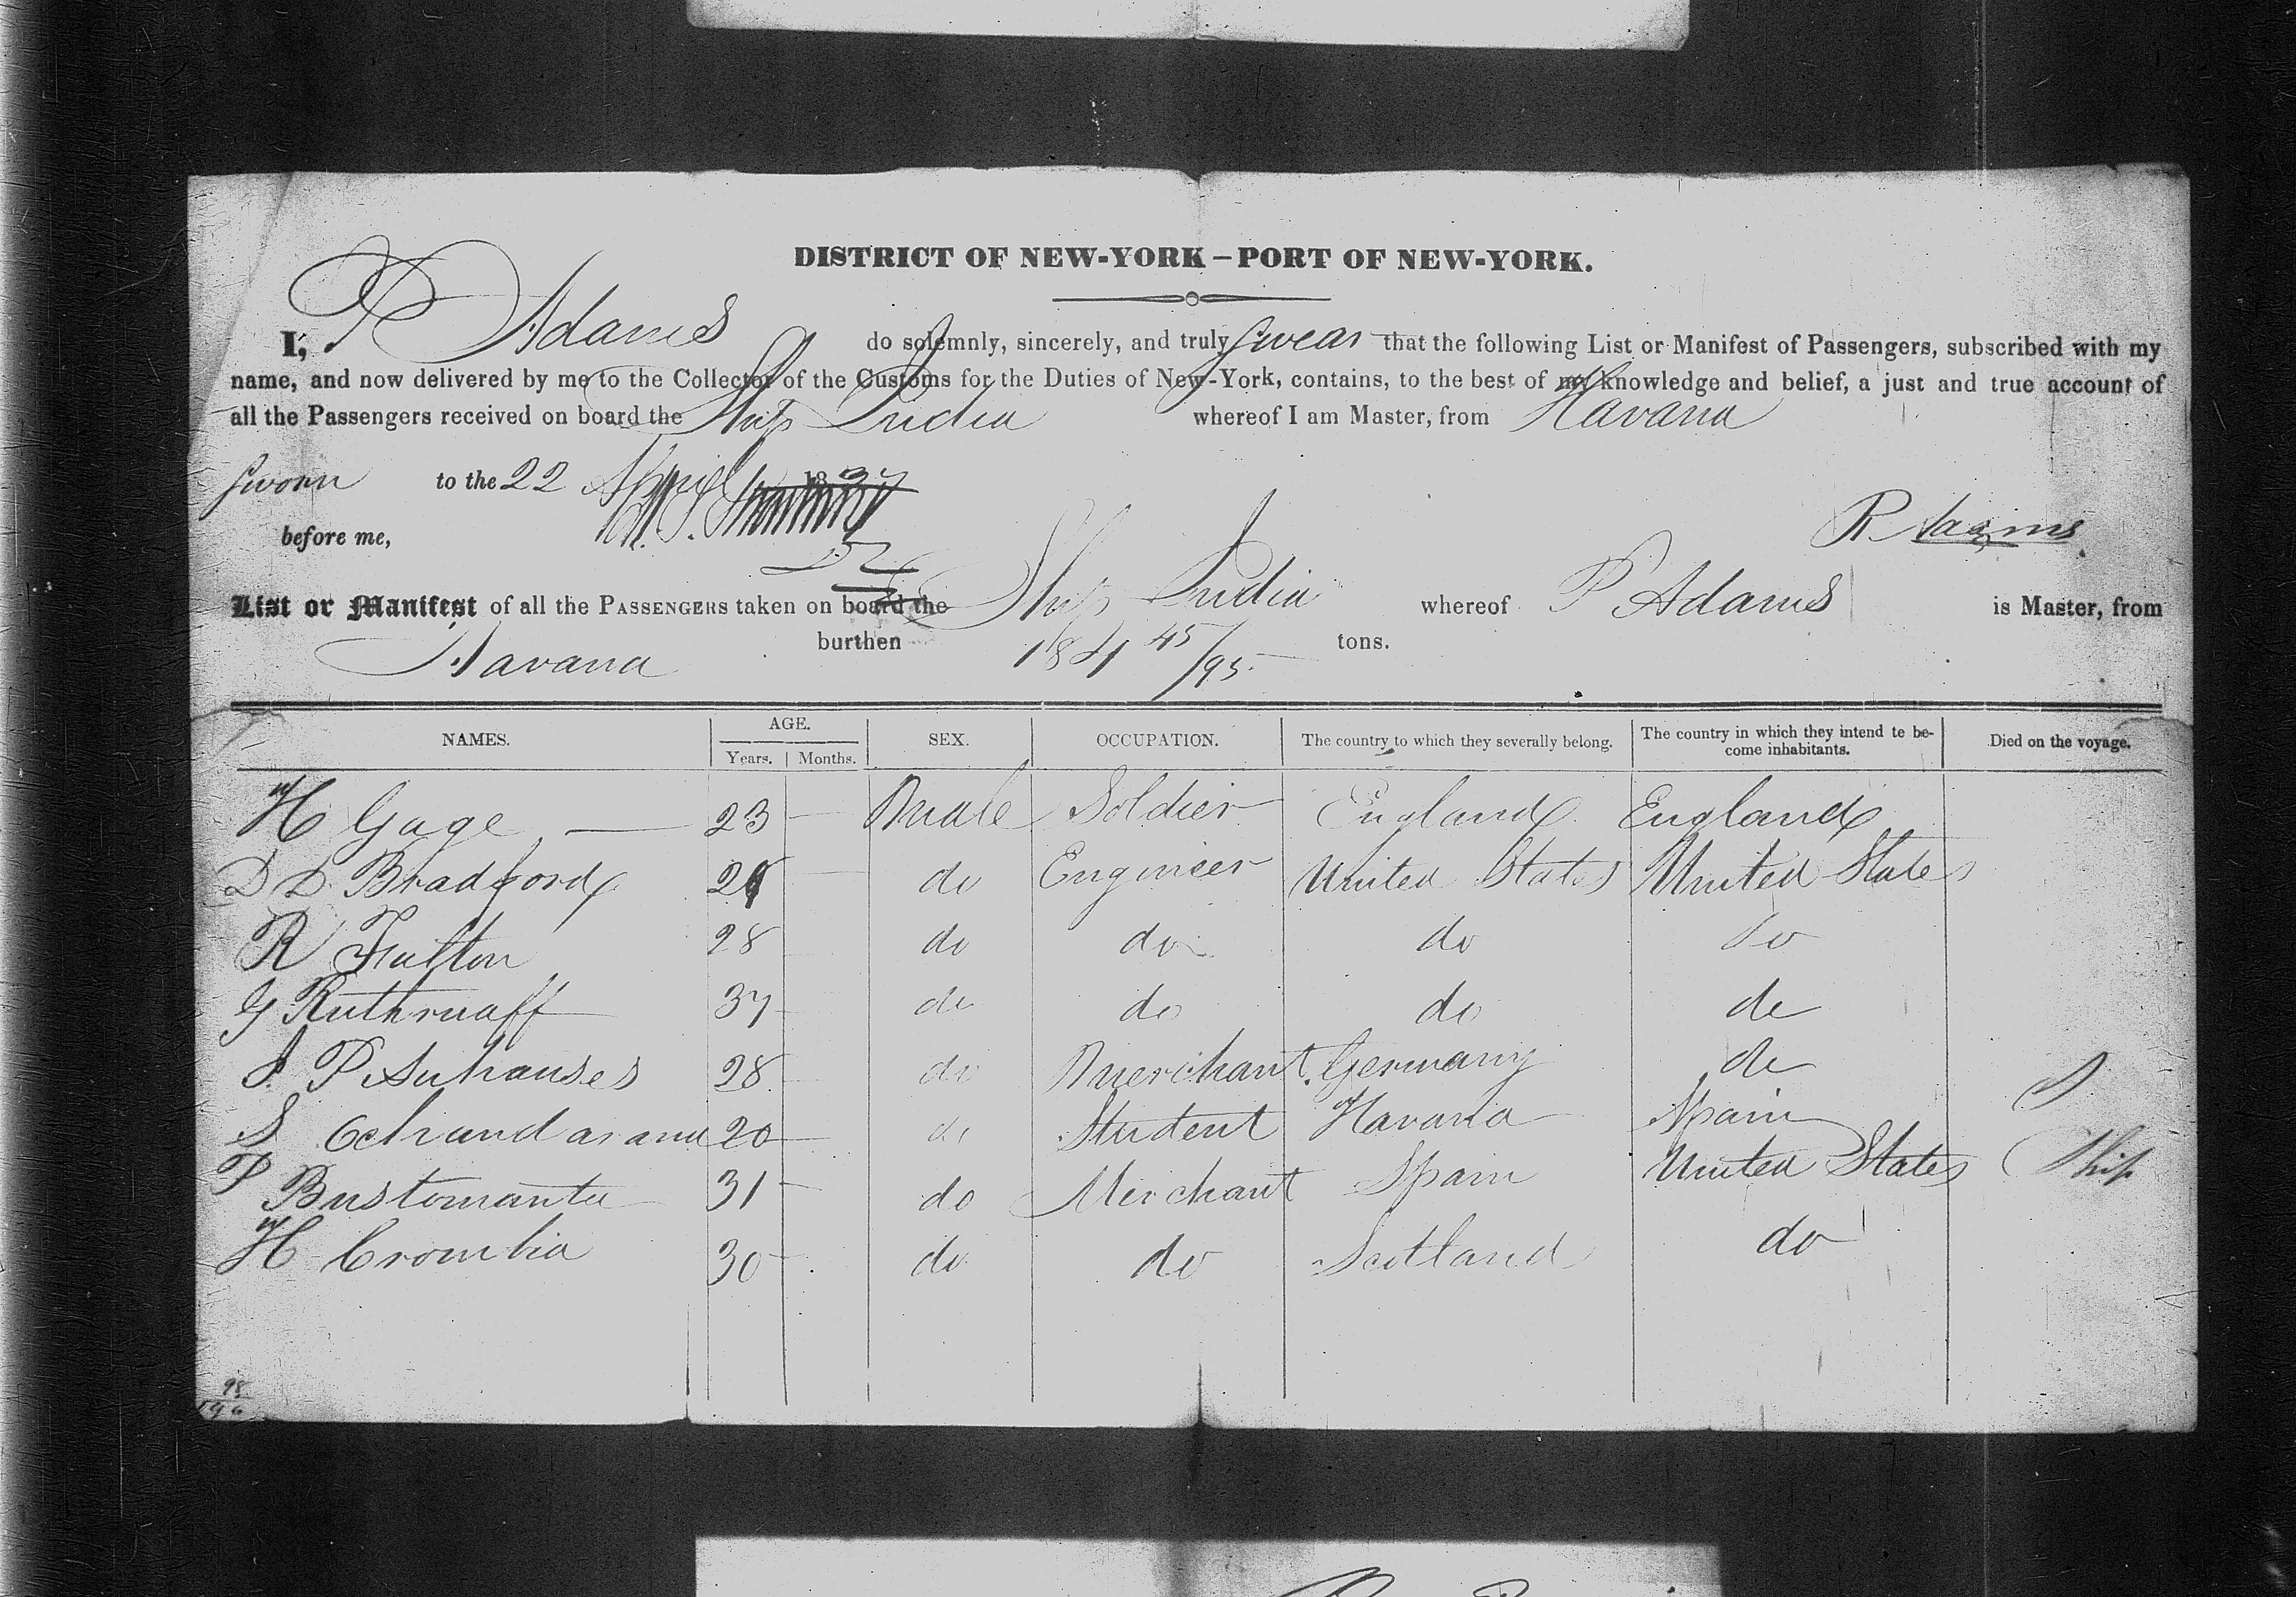 DISTRICT OF NEW-YORK – PORT OF NEW-YORK.
I, P Adams do solemnly, sincerely, and truly swear that the following List or Manifest of Passengers, subscribed with my
name, and now delivered by me to the Collector of the Customs for the Duties of New-York, contains, to the best of my knowledge and belief, a just and true account of
all the Passengers received on board the Ship India whereof I am Master, from Havana
Sworn to the 22 April 1837
before me,
List or Manifest of all the PASSENGERS taken on board the Ship India whereof P Adams is Master, from
Havana burthen 45/95 tons.
NAMES. AGE. SEX. OCCUPATION. The country to which they severally belong. The country in which they intend te be- Died on the voyage.
Years. Months. come inhabitants.
H Gage 23 Male Soldier England England
D D Bradford do Engineer United States United States
R Fulton 28 do do do do
G Ruthruaff 37 do do do do
J. P 28 do Merchant Germany do
S 20 do Student Havana Spain
P Bustomanta 31 do Merchant Spain United States Ship
H Crombia 30 do do Scotland do